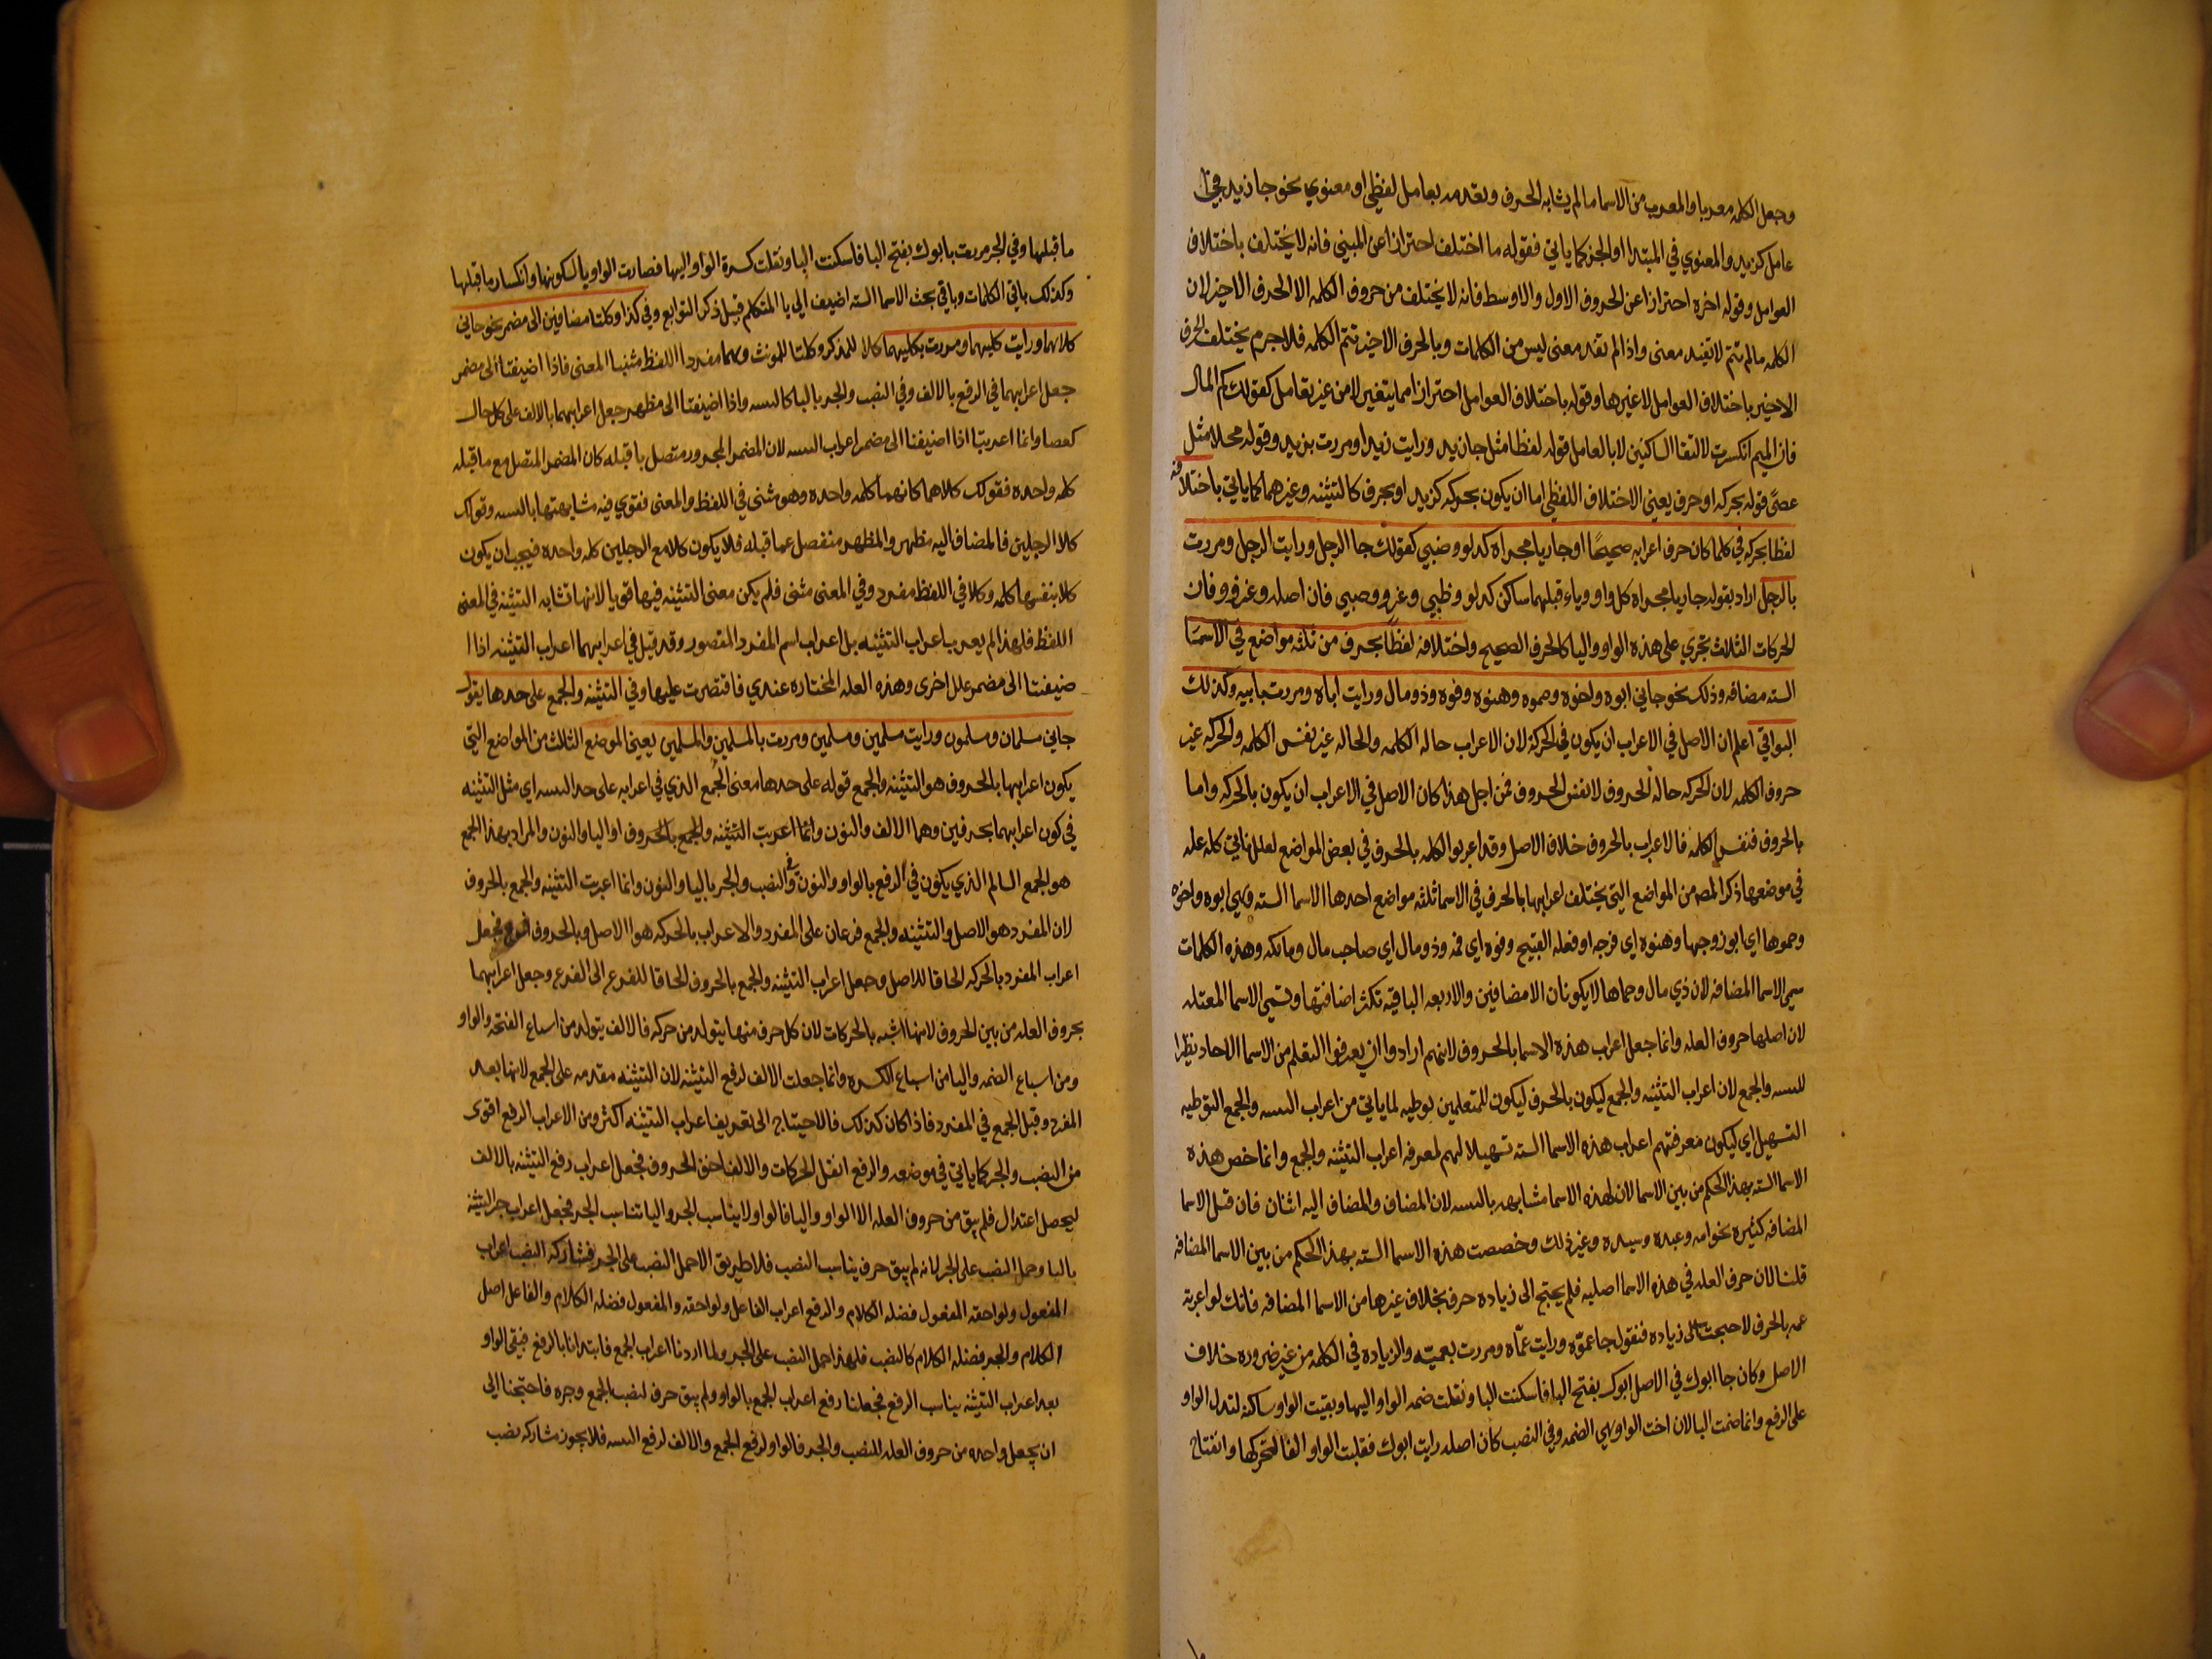 وجعل الكلمه معربا والمعرب من الاسما ما لم يشابه الحرف وتقدمه بعامل لفظي او معنوي نحو جا زيد فجا
عامل كزيد والمعنوي في المبتدا او الخبر كما ياتي فقوله ما اختلف احترازا عن المبني فانه لا يختلف باختلاف
العوامل وقوله اخره احترازا عن الحروف الاول والاوسط فانه لا يختلف من حروف الكلمه الا الحرف الاخير لان
الكلمه ما لم تتم لا تفيد معنى واذا لم تفد معنى ليس من الكلمات وبالحرف الاخير تتم الكلمه فلا جرم يختلف الحرف
الاخير باختلاف العوامل لا غيرها وقوله باختلاف العوامل احترازا مما يتغير لا من غير بعامل كقولك كم المال
فان الميم انكسرت لالتقا الساكنين لا بالعامل قوله لفظا مثل جا زيد ورايت زيدا ومررت بزيد وقوله محلا مثل
عصًى قوله بحركه او حرف يعني الاختلاف اللفظي اما ان يكون بحركه كزيد او بحرف كالتثنيه وغيرهما كما ياتي باختلافه
لفظا بحركه في كلما كان حرف اعرابه صحيحًا او جاريا مجراه كدلو وضبي كقولك جا الرجل ورايت الرجل ومررت
بالرجل اراد بقوله جاريا مجراه كل واو وياء قبلهما ساكن كدلو وظبي وغزو وصبي فان اصله وغزوو فان
الحركات الثلاث تجري على هذه الواو واليا كالحرف الصحيح واختلافه لفظًا بحرف من ثلثه مواضع في الاسما
السته مضافه وذلك نحو جاني ابوه واخوه وحموه وهنوه وفوه وذو مال ورايت اباه ومررت بابيه وكذلك
البواقي اعلم ان الاصل في الاعراب ان يكون في الحركه لان الاعراب حاله الكلمه والحاله غير نفس الكلمه والحركه غير
حروف الكلمه لان الحركه حاله الحروف لا نفس الحروف فمن اجل هذا كان الاصل في الاعراب ان يكون بالحركه واما
بالحروف فنفس الكلمه فالاعراب بالحروف خلاف الاصل وقد اعربوا الكلمه بالحرف في بعض المواضع لعلل تاتي كله عله
في موضعها ذكر المصـ من المواضع التي يختلف اعرابها بالحرف في الاسما ثلثه مواضع احدها الاسما السته وهي ابوه واخوه
وحموها اي ابو زوجها وهنوه اي فرجه او فعله القبيح وفوه اي فمه وذو مال اي صاحب مال ومالكه وهذه الكلمات
سمي الاسما المضافه لان ذي مال وحماها لا يكونان الا مضافين والاربعه الباقيه تكثر اضافتها وتسمي الاسما المعتله
لان اصلها حروف العله وانما جعل اعراب هذه الاسما بالحروف لانهم ارادوا ان يعرفوا التعلم من الاسما الاحاد نظرا
للتثنيه والجمع لان اعراب التثنيه والجمع ليكون بالحرف ليكون للمتعلمين توطيه لما ياتي من اعراب التثنيه والجمع التوطيه
التسهيل اي ليكون معرفتهم اعراب هذه الاسما السته تسهيلا لهم لمعرفه اعراب التثنيه والجمع وانما خص هذه
الاسما السته بهذا الحكم من بين الاسما لان لهذه الاسما مشابهه بالتثنيه لان المضاف والمضاف اليه اثنان فان قيل الاسما
المضافه كثيره نحو امه وعبده وسيده وغير ذلك وخصصت هذه الاسما السته بهذا الحكم من بين الاسما المضافه
قلنا لان حرف العله في هذه الاسما اصليه فلم يحتج الى زياده حرف بخلاف غيرها من الاسما المضافه فانك لو اعربت
عمه بالحرف لاحتجت الى زياده فنقول جا عموّه ورايت عمّاه ومررت بعميّه والزياده في الكلمه من غير ضروره خلاف
الاصل وكان جا ابوك في الاصل ابوك بفتح البا فاسكنت البا ونقلت ضمه الواو اليها وبقيت الواو ساكنه لتدل الواو
على الرفع وانما ضمت البا لان اخت الواو هي الضمه وفي النصب كان اصله رايت ابوك فقلبت الواو الفا لتحركها وانفتاح
ما قبلها وفي الجر مررت بابوك بفتح البا فاسكنت البا ونقلت كسرة الواو اليها فصارت الواو يا لسكونها وانكسار ما قبلها
وكذلك باقي الكلمات وباقي بحث الاسما السته اضيف الى يا المتكلم قبيل ذكر التوابع وفي كذا وكلتا مضافين الى مضمر نحو جاني
كلاهما ورايت كليهما ومررت بكليهما كلا للمذكر وكلتا للمونث وهما مفردا اللفظ مثنيا المعنى فاذا اضيفتا الى مضمر
جعل اعرابهما في الرفع بالالف وفي النصب والجر باليا كالتثنيه واذا اضيفتا الى مظهر جعل اعرابهما بالالف على كل حال
كعصا وانما اعربتا اذا اضيفتا الى مضمر اعراب التثنيه لان المضمر المجرور متصل بما قبله كان المضمر المتصل مع ما قبله
كلمه واحده فقولك كلاهما كانهما كلمه واحده وهو مثنى في اللفظ والمعنى فقوي فيه مشابهتها بالتثنيه وقولك
كلا الرجلين فالمضاف اليه مظهر والمظهر منفصل عما قبله فلا يكون كلا مع الرجلين كلمه واحده فيجب ان يكون
كلا بنفسها كلمه وكلا في اللفظ مفرد وفي المعنى مثنى فلم يكن معنى التثنيه فيها قويا لانها تشابه التثنيه في المعنى
اللفظ فلهذا لم يعرب باعراب التثنيه بل اعراب اسم المفرد المقصور وقد قيل في اعرابهما اعراب التثنيه اذا ا
ضيفتا الى مضمر علل اخرى وهذه العله المختاره عندي فاقتصرت عليها وفي التثنيه والجمع على حدها يقول
جاني مسلمان ومسلمون ورايت مسلمين ومسلمين ومررت بالمسلمين والمسلمين يعني الموضع الثالث من المواضع التي
يكون اعرابها بالحروف هو التثنيه والجمع قوله على حدها معنى الجمع الذي في اعرابه على حد التثنيه اي مثل التثنيه
في كون اعرابهما بحرفين وهما الالف والنون وانما اعربت التثنيه والجمع بالحروف او اليا والنون والمراد بهذا الجمع
هو الجمع السالم الذي يكون في الرفع بالواو والنون وفي النصب والجر باليا والنون وانما اعربت التثنيه والجمع بالحروف
لان المفرد هو الاصل والتثنيه والجمع فرعان على المفرد والاعراب بالحركه هوا الاصل وبالحروف فرع فجعل
اعراب المفرد بالحركه الحاقا للاصل وجعل اعراب التثنيه والجمع بالحروف الحاقا للفرع الى الفرع وجعل اعرابهما
بحروف العله من بين الحروف لانها اشبه بالحركات لان كل حرف منها يتولد من حركه فالالف يتولد من اسباع الفتحه والواو
ومن اسباع الضمه واليا من اسباع الكسره وانما جعلت الالف لرفع التثنيه لان التثنيه مقدمه على الجمع لانها بعد
المفرد وقبل الجمع في المفرد فاذا كان كذلك فالاحتياج الى تعريف اعراب التثنيه اكثر ومن الاعراب الرفع اقوى
من النصب والجر كما ياتي في موضعه والرفع اثقل الحركات والالف اخف الحروف فجعل اعراب رفع التثنيه بالالف
ليحصل اعتدال فلم يبق من حروف العله الا الواو واليا فالواو لا يناسب الجر واليا تناسب الجر فجعل اعراب جر التثنيه
باليا وحمل النصب على الجر لانه لم يبق حرف يناسب النصب فلا طريق الا حمل النصب على الجر فشاركه النصب اعراب
المفعول ولواحقه المفعول فضله الكلام والرفع اعراب الفاعل ولواحقه والمفعول فضله الكلام والفاعل اصل
الكلام والجر فضله الكلام كالنصب فلهذا حمل النصب على الجر ولما اردنا اعراب الجمع فابتدانا بالرفع فبقى الواو
بعد اعراب التثنيه يناسب الرفع فجعلنا رفع اعراب الجمع بالواو ولم يبق حرف لنصب الجمع وجره فاحتجنا الى
ان يجعل واحده من حروف العله للنصب والجر فالواو لرفع الجمع والالف لرفع التثنيه فلا يجوز مشاركه نصب